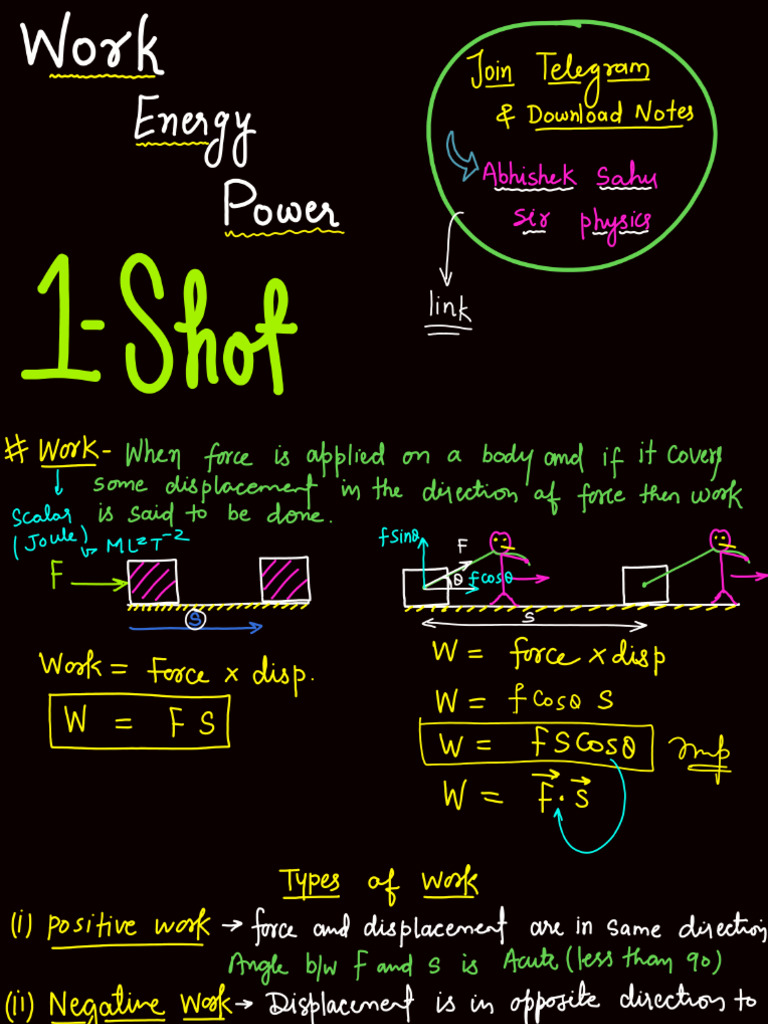 Work
Energy
Power
1-Shot
Join Telegram
& Download Notes
Abhishek Sahu
Sir physics
link
# Work - When force is applied on a body and if it covers
some displacement in the direction of force then work
is said to be done.
Scalar
(Joule) ML²T⁻²
F
S
Work = Force x disp.
W = F S
fsinθ
F
θ
fcosθ
S
W = force x disp
W = f cosθ S
W = F S Cosθ
Imp
W = F⃗ . S⃗
Types of Work
(i) positive work → force and displacement are in same direction
Angle b/w f and s is Acute (less than 90)
(ii) Negative Work → Displacement is in opposite direction to